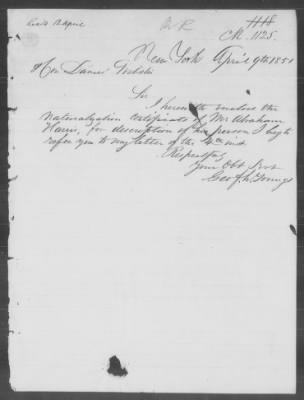 M R
M. 1125.
New York April 9th 1851
Hon Daniel Webster
Sir
I herewith enclose the
Naturalization certificate of Mr Abraham
for description of his person I beg to
refer you to my letter of the 4th inst.
Respectfuly
Your Obt Svt
Geo. H.